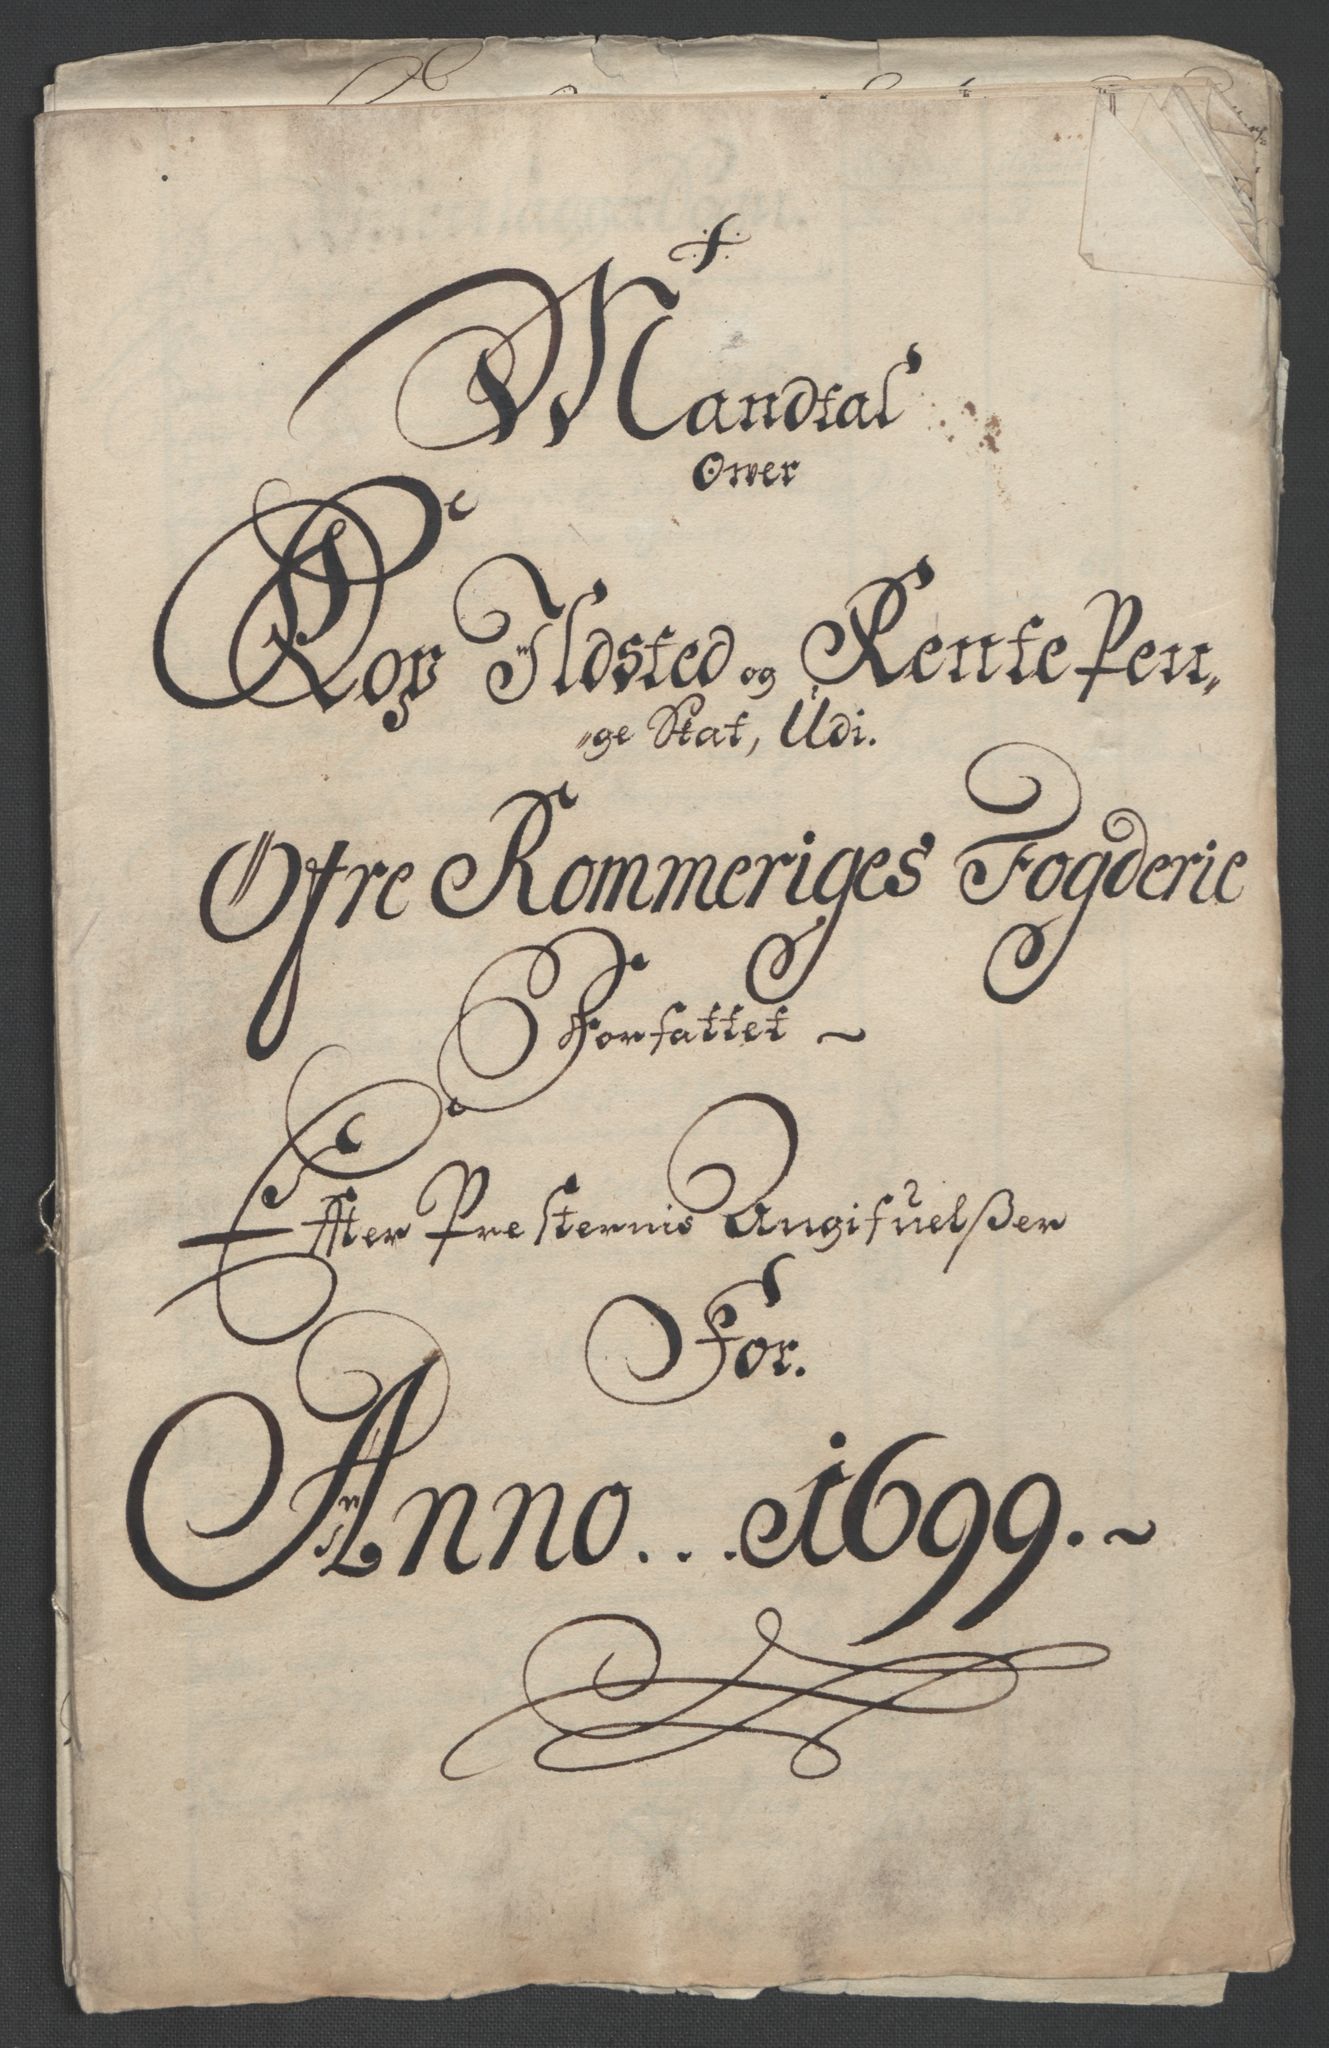 Mandtal
Over
Kop Ildsted og Rente Pen„
„ge Skat, Udi.
Øfre Rommeriges Fogderie
Forfattet ~
Effter Presternis Angifuelsßer
For.
Anno... 1699. ~